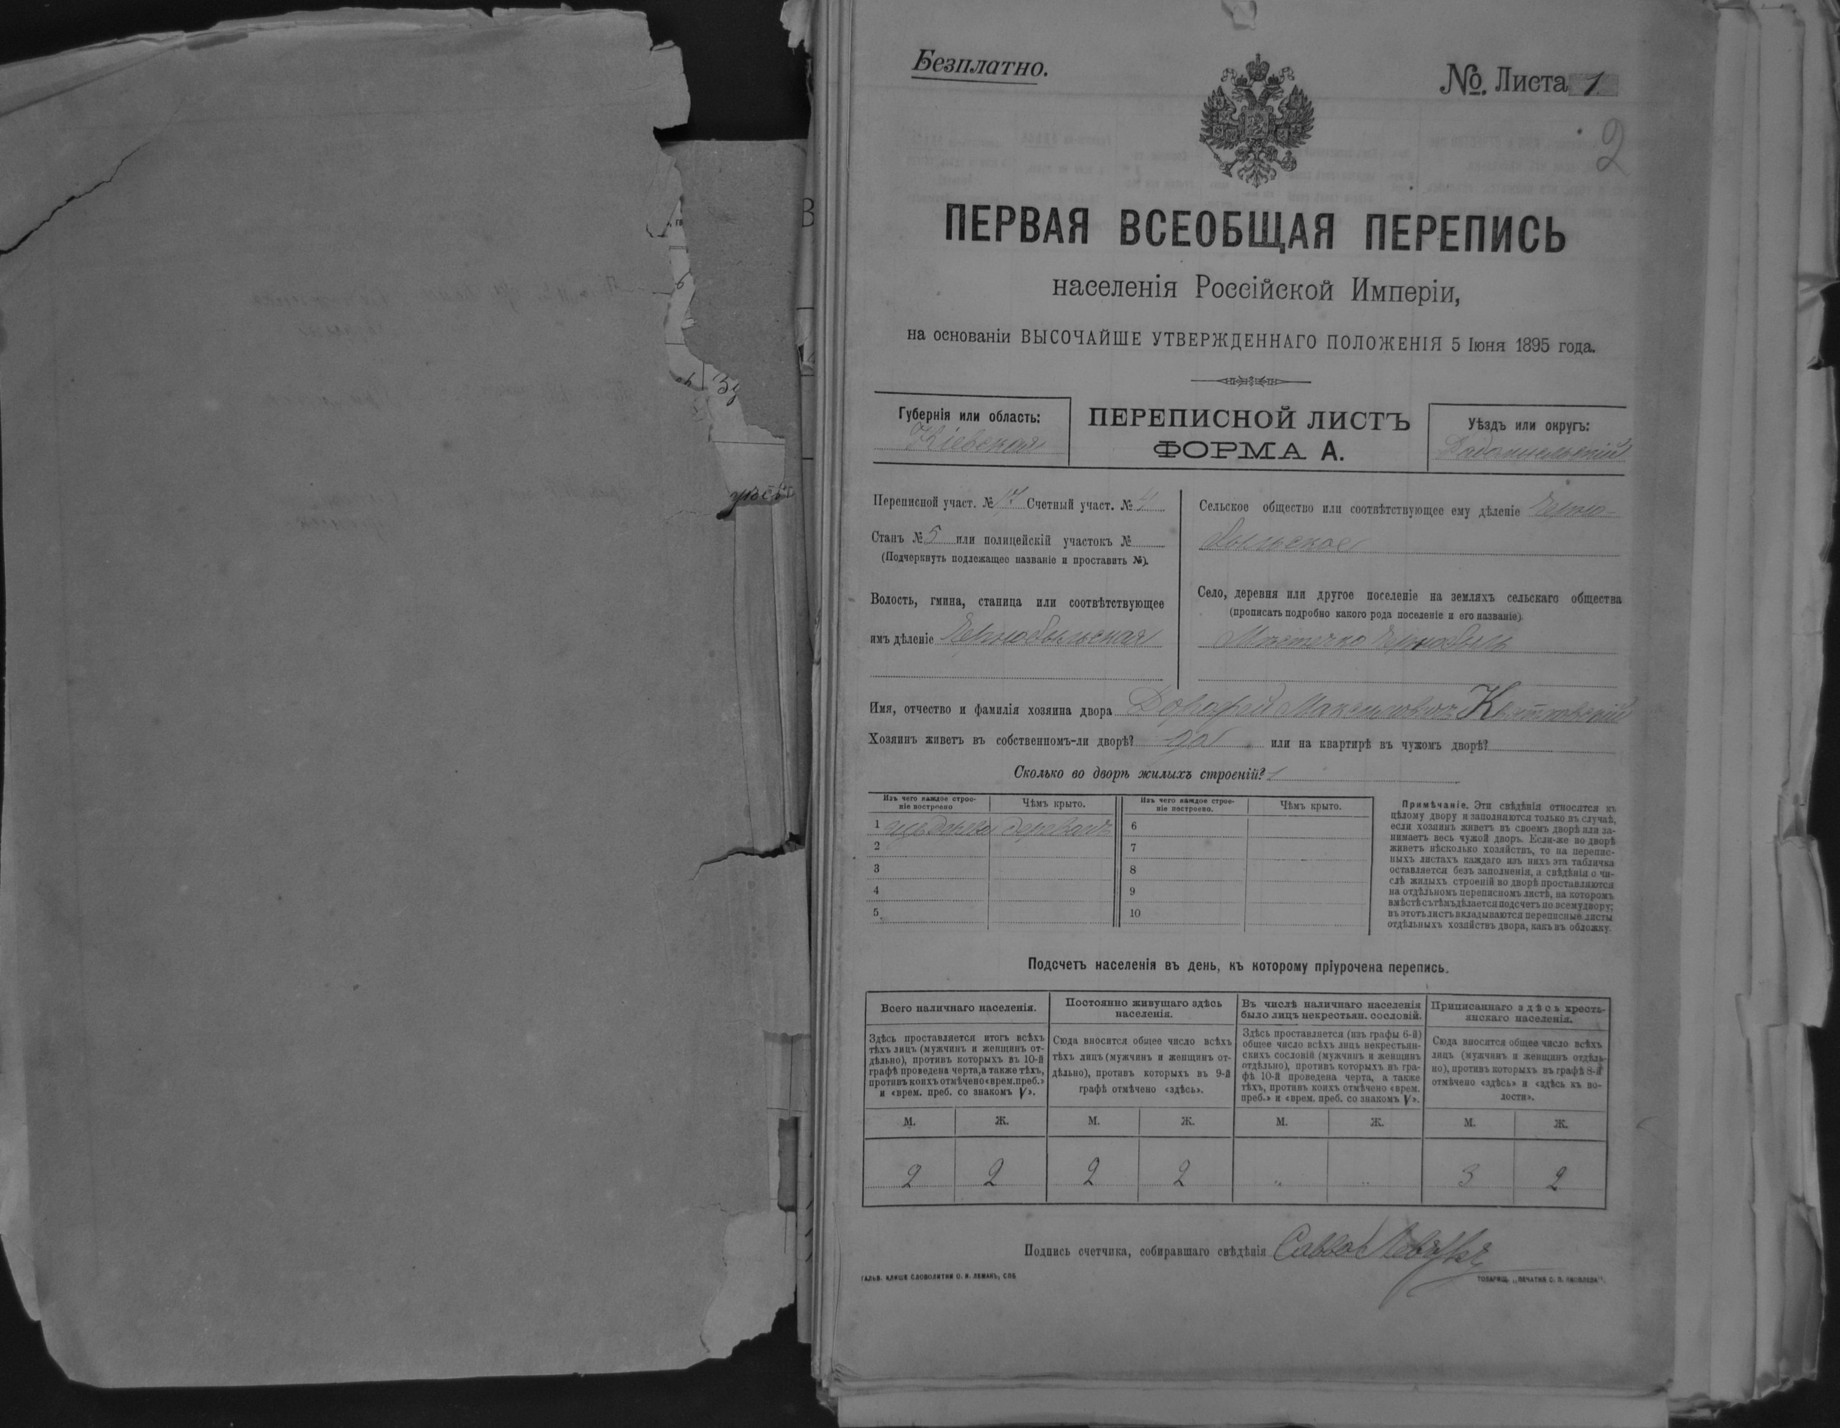 Безплатно.
№. Листа 1
2
ПЕРВАЯ ВСЕОБЩАЯ ПЕРЕПИСЬ
населенія Россійской Имперіи,
на основаніи ВЫСОЧАЙШЕ УТВЕРЖДЕННАГО ПОЛОЖЕНІЯ 5 Іюня 1895 года.
Губернія или область:
Кіевская
ПЕРЕПИСНОЙ ЛИСТЪ
ФОРМА А.
Уѣздъ или округъ:
Радомысльскій
Переписной участ. № 17 Счетный участ. № 4
Станъ № 5 или полицейскій участокъ №
(Подчеркнуть подлежащее названіе и проставить №).
Волость, гмина, станица или соотвѣтствующее
имъ дѣленіе Чернобыльская
Сельское общество или соотвѣтствующее ему дѣленіе Черно-
быльское
Село, деревня или другое поселеніе на земляхъ сельскаго общества
(прописать подробно какого рода поселеніе и его названіе).
Мѣстечко Чернобыль
Имя, отчество и фамилія хозяина двора Дорофей Максимовичъ
Хозяинъ живетъ въ собственномъ-ли дворѣ? да или на квартирѣ въ чужомъ дворѣ?
Сколько во дворѣ жилыхъ строеній? 1
Изъ чего каждое строе-
ніе построено
Чѣмъ крыто.
Изъ чего каждое строе-
ніе построено.
Чѣмъ крыто.
1 изъ дерева деревомъ
2
3
4
5
6
7
8
9
10
Примѣчаніе. Эти свѣдѣнія относятся къ
цѣлому двору и заполняются только въ случаѣ,
если хозяинъ живетъ въ своемъ дворѣ или за-
нимаетъ весь чужой дворъ. Если-же во дворѣ
живетъ нѣсколько хозяйствъ, то на перепис-
ныхъ листахъ каждаго изъ нихъ эта табличка
оставляется безъ заполненія, а свѣдѣнія о чи-
слѣ жилыхъ строеній во дворѣ проставляются
на отдѣльномъ переписномъ листѣ, на которомъ
вмѣстѣ съ тѣмъ дѣлается подсчетъ по всему двору;
въ этотъ листъ вкладываются переписные листы
отдѣльныхъ хозяйствъ двора, какъ въ обложку.
Подсчетъ населенія въ день, къ которому пріурочена перепись.
Всего наличнаго населенія.
Здѣсь проставляется итогъ всѣхъ
тѣхъ лицъ (мужчинъ и женщинъ от-
дѣльно), противъ которыхъ въ 10-й
графѣ проведена черта, а также тѣхъ,
противъ коихъ отмѣчено «врем. преб.»
и «врем. преб. со знакомъ V».
Постоянно живущаго здѣсь
населенія.
Сюда вносится общее число всѣхъ
тѣхъ лицъ (мужчинъ и женщинъ от-
дѣльно), противъ которыхъ въ 9-й
графѣ отмѣчено «здѣсь».
Въ числѣ наличнаго населенія
было лицъ некрестьян. сословій.
Здѣсь проставляется (изъ графы 6-й)
общее число всѣхъ лицъ некрестьян-
скихъ сословій (мужчинъ и женщинъ
отдѣльно), противъ которыхъ въ гра-
фѣ 10-й проведена черта, а также
тѣхъ, противъ коихъ отмѣчено «врем.
преб.» и «врем. преб. со знакомъ V».
Приписаннаго здѣсь кресть-
янскаго населенія.
Сюда вносится общее число всѣхъ
лицъ (мужчинъ и женщинъ отдѣль-
но), противъ которыхъ въ графѣ 8-й
отмѣчено «здѣсь» и «здѣсь въ во-
лости».
М. Ж. М. Ж. М. Ж. М. Ж.
2 2 2 2 „ „ 3 2
Подпись счетчика, собиравшаго свѣдѣнія Савва
ГАЛЬВ. КЛИШЕ СЛОВОЛИТНИ О. И. ЛЕМАНЪ, СПБ
ТОВАРИЩ. „ПЕЧАТНЯ С. П. ЯКОВЛЕВА“.